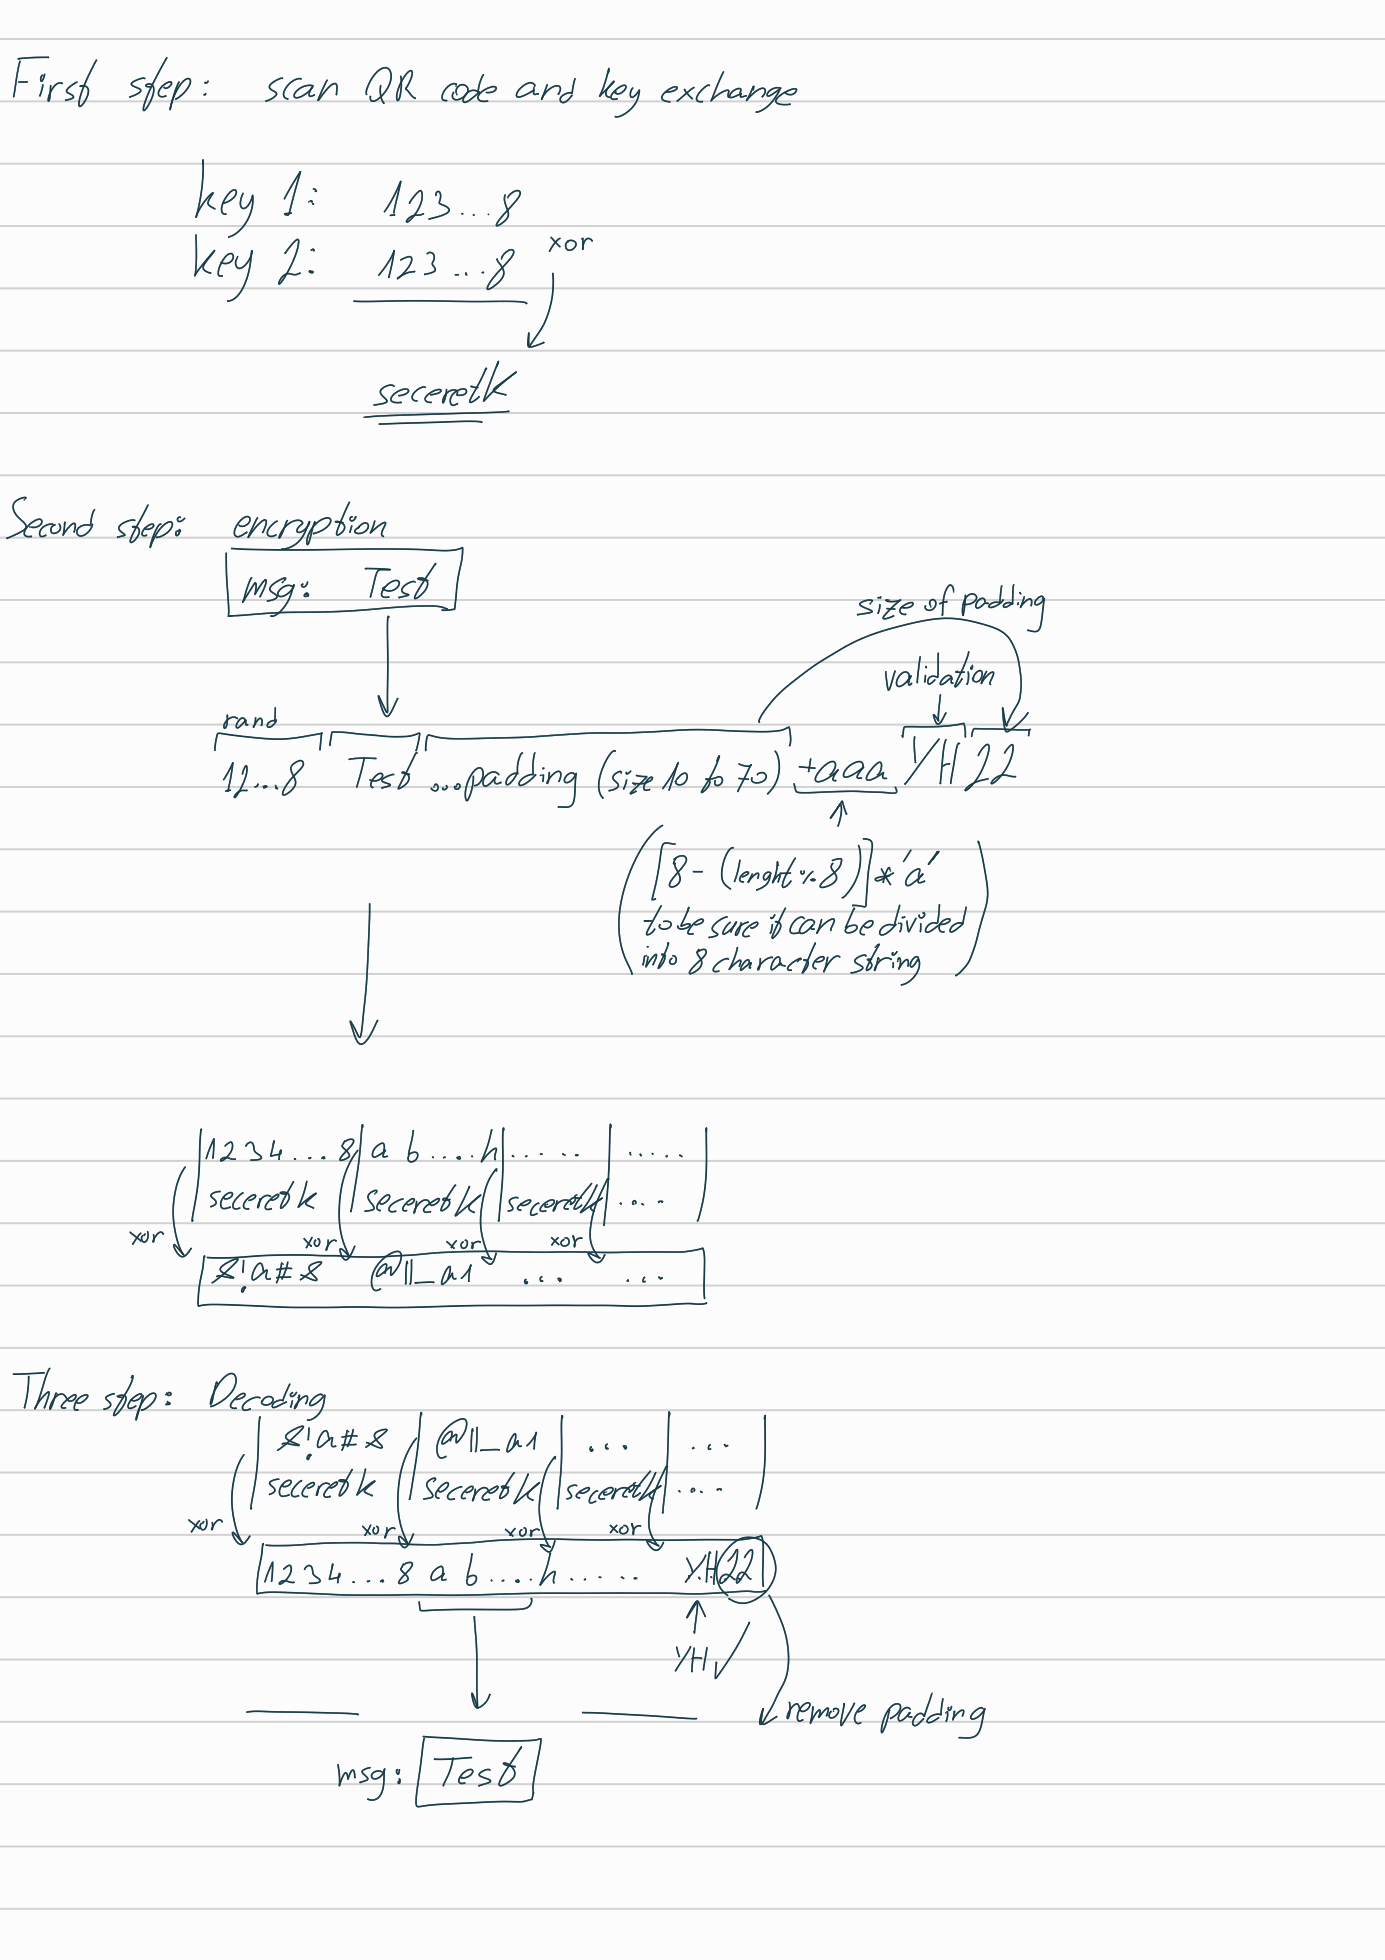 First step: scan QR code and key exchange
key 1: 123...8
key 2: 123...8 xor
seceretk
Second step: encryption
msg: Test
size of padding
validation
rand
12...8 Test ...padding (size 10 to 70) +aaa YH 22
([8-(lenght%8)]*'a'
to be sure it can be divided
into 8 character string)
1234...8 ab....h ..... .....
seceretk seceretk seceretk ....
xor xor xor xor
$!a#8 @||_a1 ... ...
Three step: Decoding
$!a#8 @||_a1 ... ...
seceretk seceretk seceretk ....
xor xor xor xor
1234...8 ab....h ..... YH22
YH✓
remove padding
msg: Test